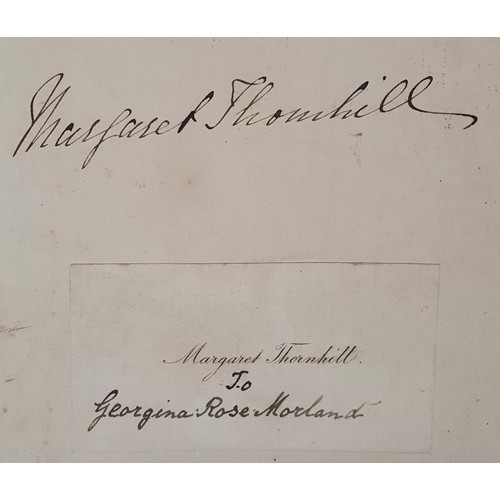 Margaret Thornhill
Margaret Thornhill.
To
Georgina Rose Morland